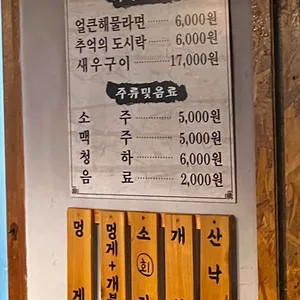 얼큰해물라면 6,000원
추억의 도시락 6,000원
새우구이 17,000원
주류및음료
소 주 5,000원
맥 주 5,000원
청 하 6,000원
음 료 2,000원
멍게
멍게+개불
소 회
개
산낙